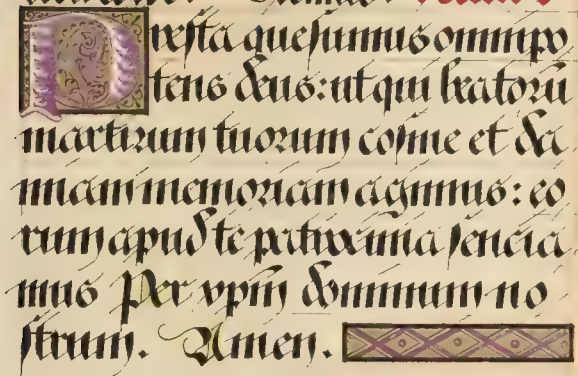 Presta quesumus omnipo
tens deus: ut qui beatorū
martirum tuorum cosme et da
miani memoriam agimus: eo
rum apud te patrocinia sencia
mus Per xpm̄ dominum no
strum. Amen.